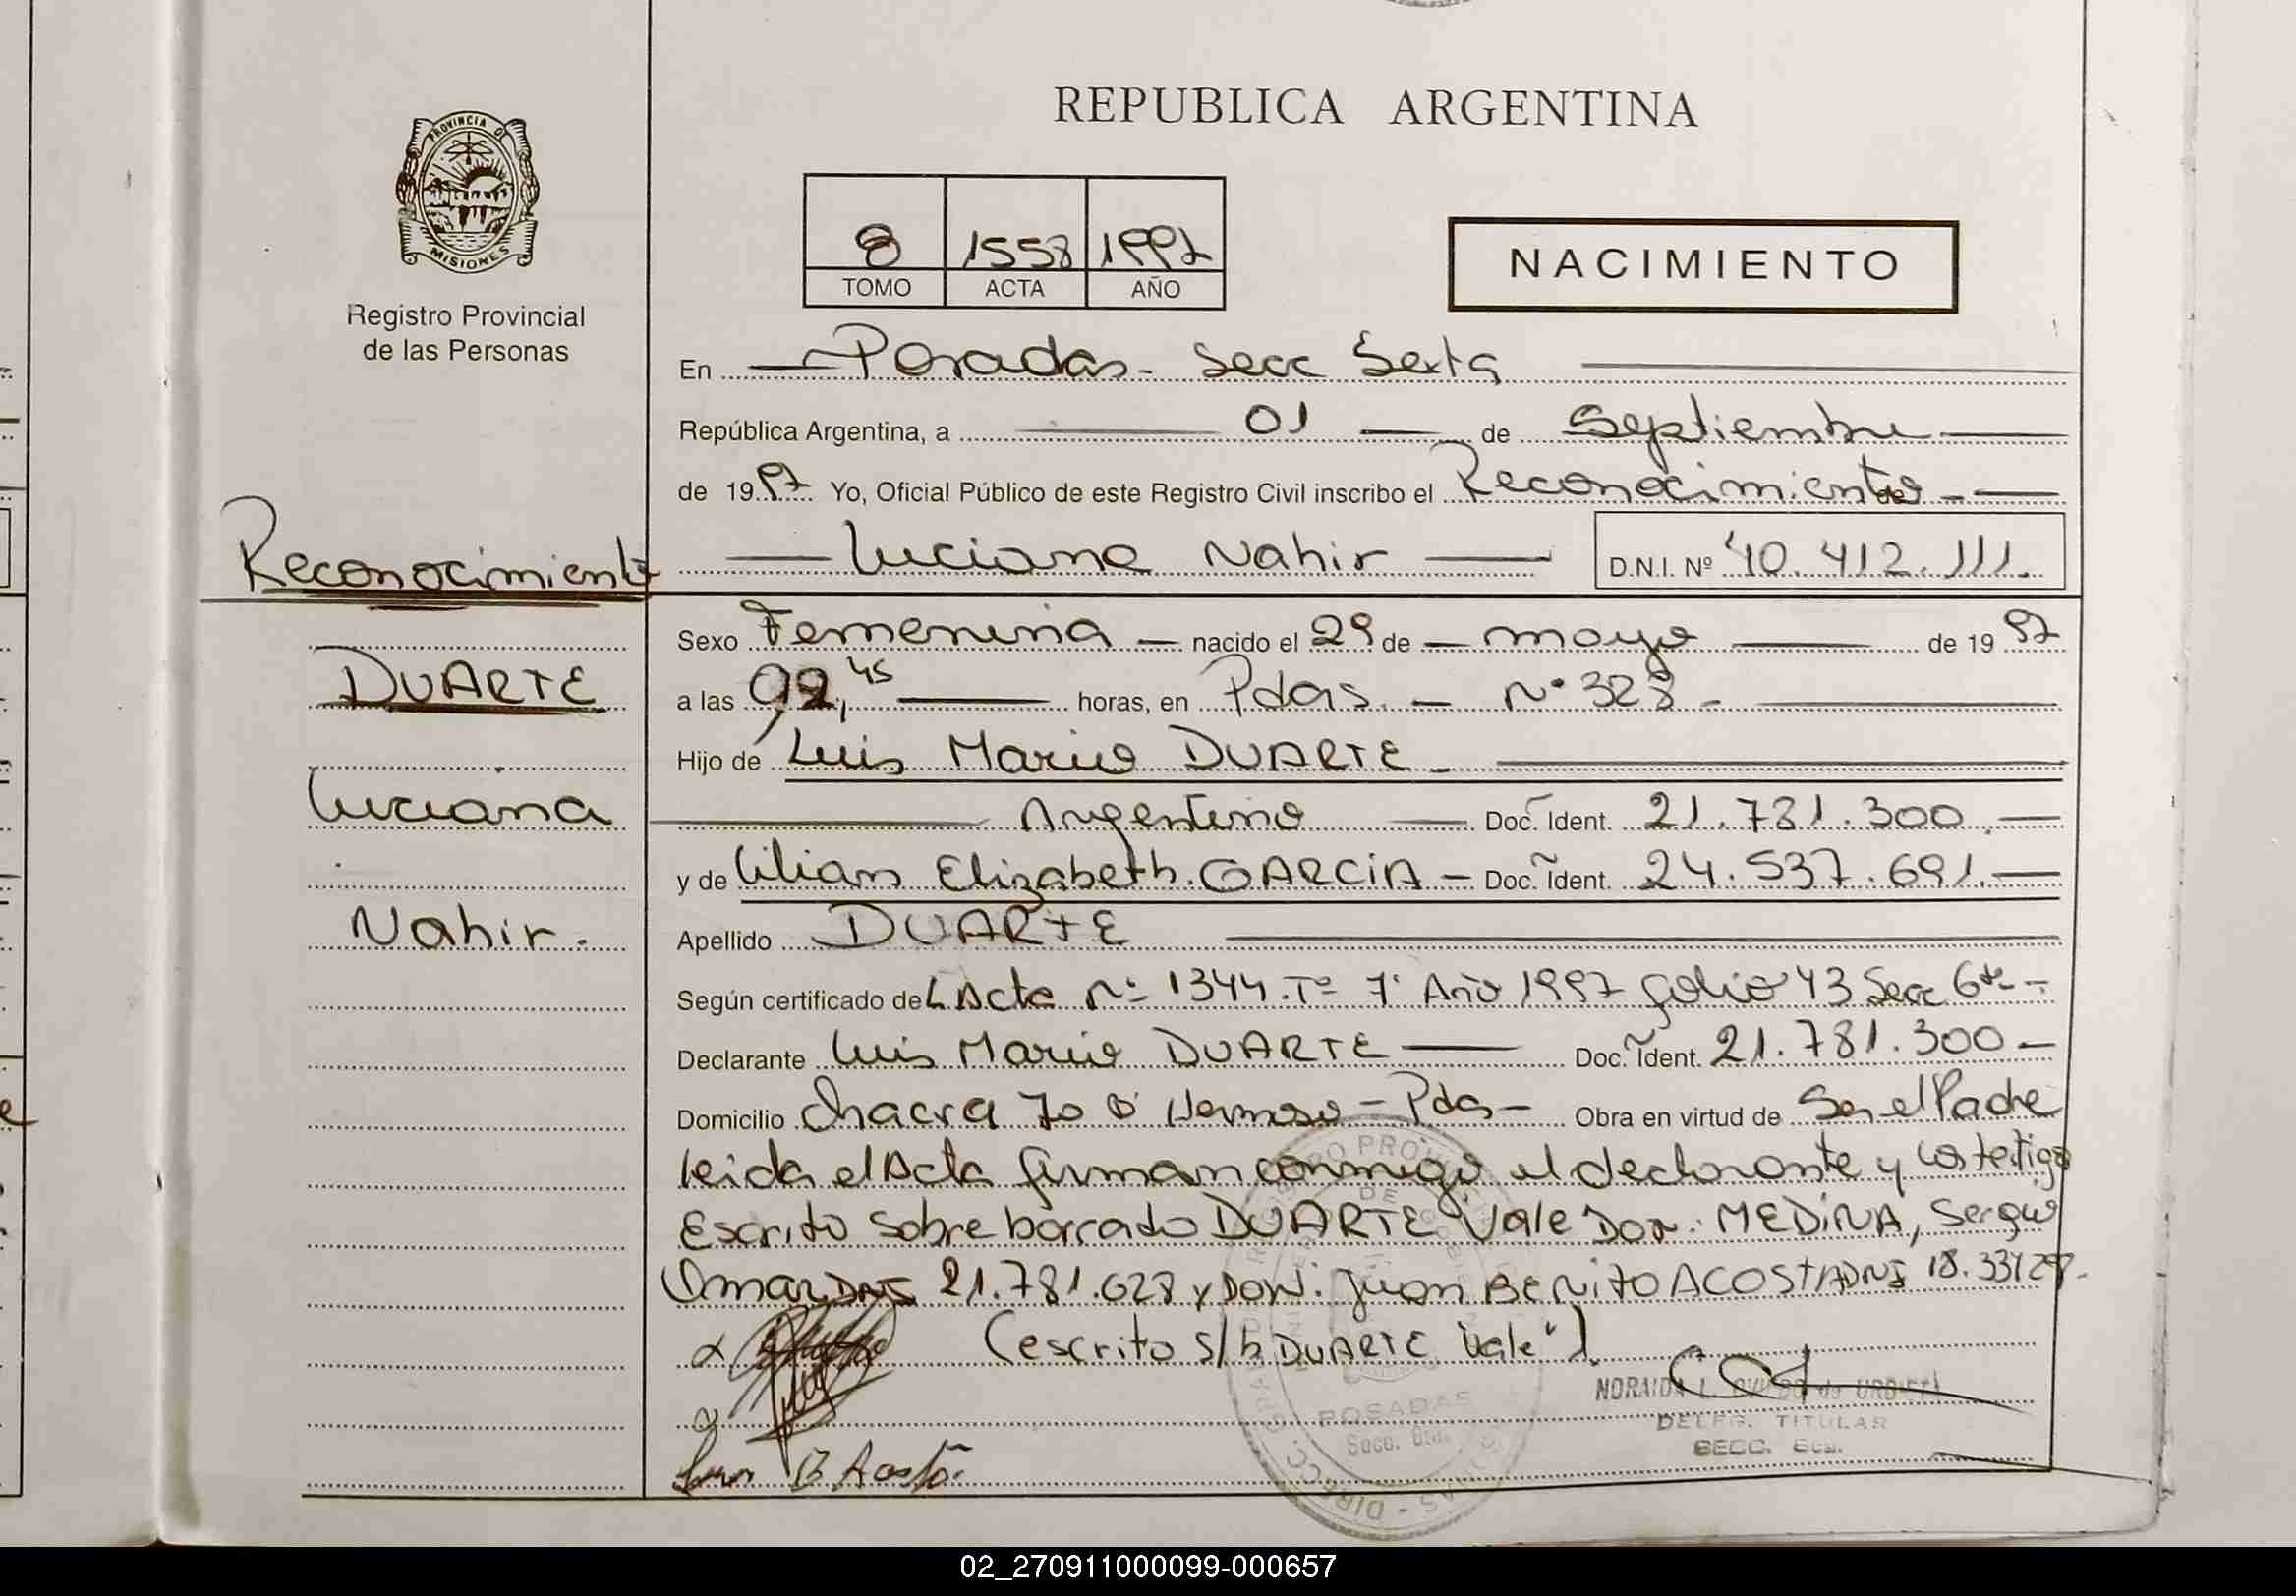 REPUBLICA ARGENTINA
PROVINCIA DE
MISIONES
Registro Provincial
de las Personas
8 1558 1997
TOMO ACTA AÑO
NACIMIENTO
En Posadas - Secc Sexta
República Argentina, a 01 de Septiembre
de 1997 Yo, Oficial Público de este Registro Civil inscribo el Reconocimiento de
Luciana Nahir D.N.I. Nº 40.412.111.
Reconocimiento
DUARTE
Luciana
Nahir.
Sexo Femenina nacido el 29 de mayo de 1997
a las 02,45 horas, en Pdas. - Nº 328 -
Hijo de Luis Mario DUARTE -
Argentino Doc. Ident. 21.781.300.
y de Lilian Elizabeth. GARCIA - Doc. Ident. 24.537.691.
Apellido DUARTE
Según certificado de L Acta Nº 1344. Tº 7º Año 1997 folio 43 Secc 6ta -
Declarante Luis Mario DUARTE Doc. Ident. 21.781.300 -
Domicilio Chacra 70 Bº Hermoso - Pdas - Obra en virtud de Ser el Padre
leida el Acta firman conmigo el declarante y los testigo
Escrito sobre borrado DUARTE Vale Don: MEDINA, Sergio
Omar DNI 21.781.628 y DON: Juan BENITO ACOSTA DNI
(escrito s/b DUARTE "Vale")
Juan B Acosta
NORAIDA L. OVIEDO de URBIETA
DELEG. TITULAR
SECC. 6ta.
POSADAS
Secc. 6ta.
02_270911000099-000657